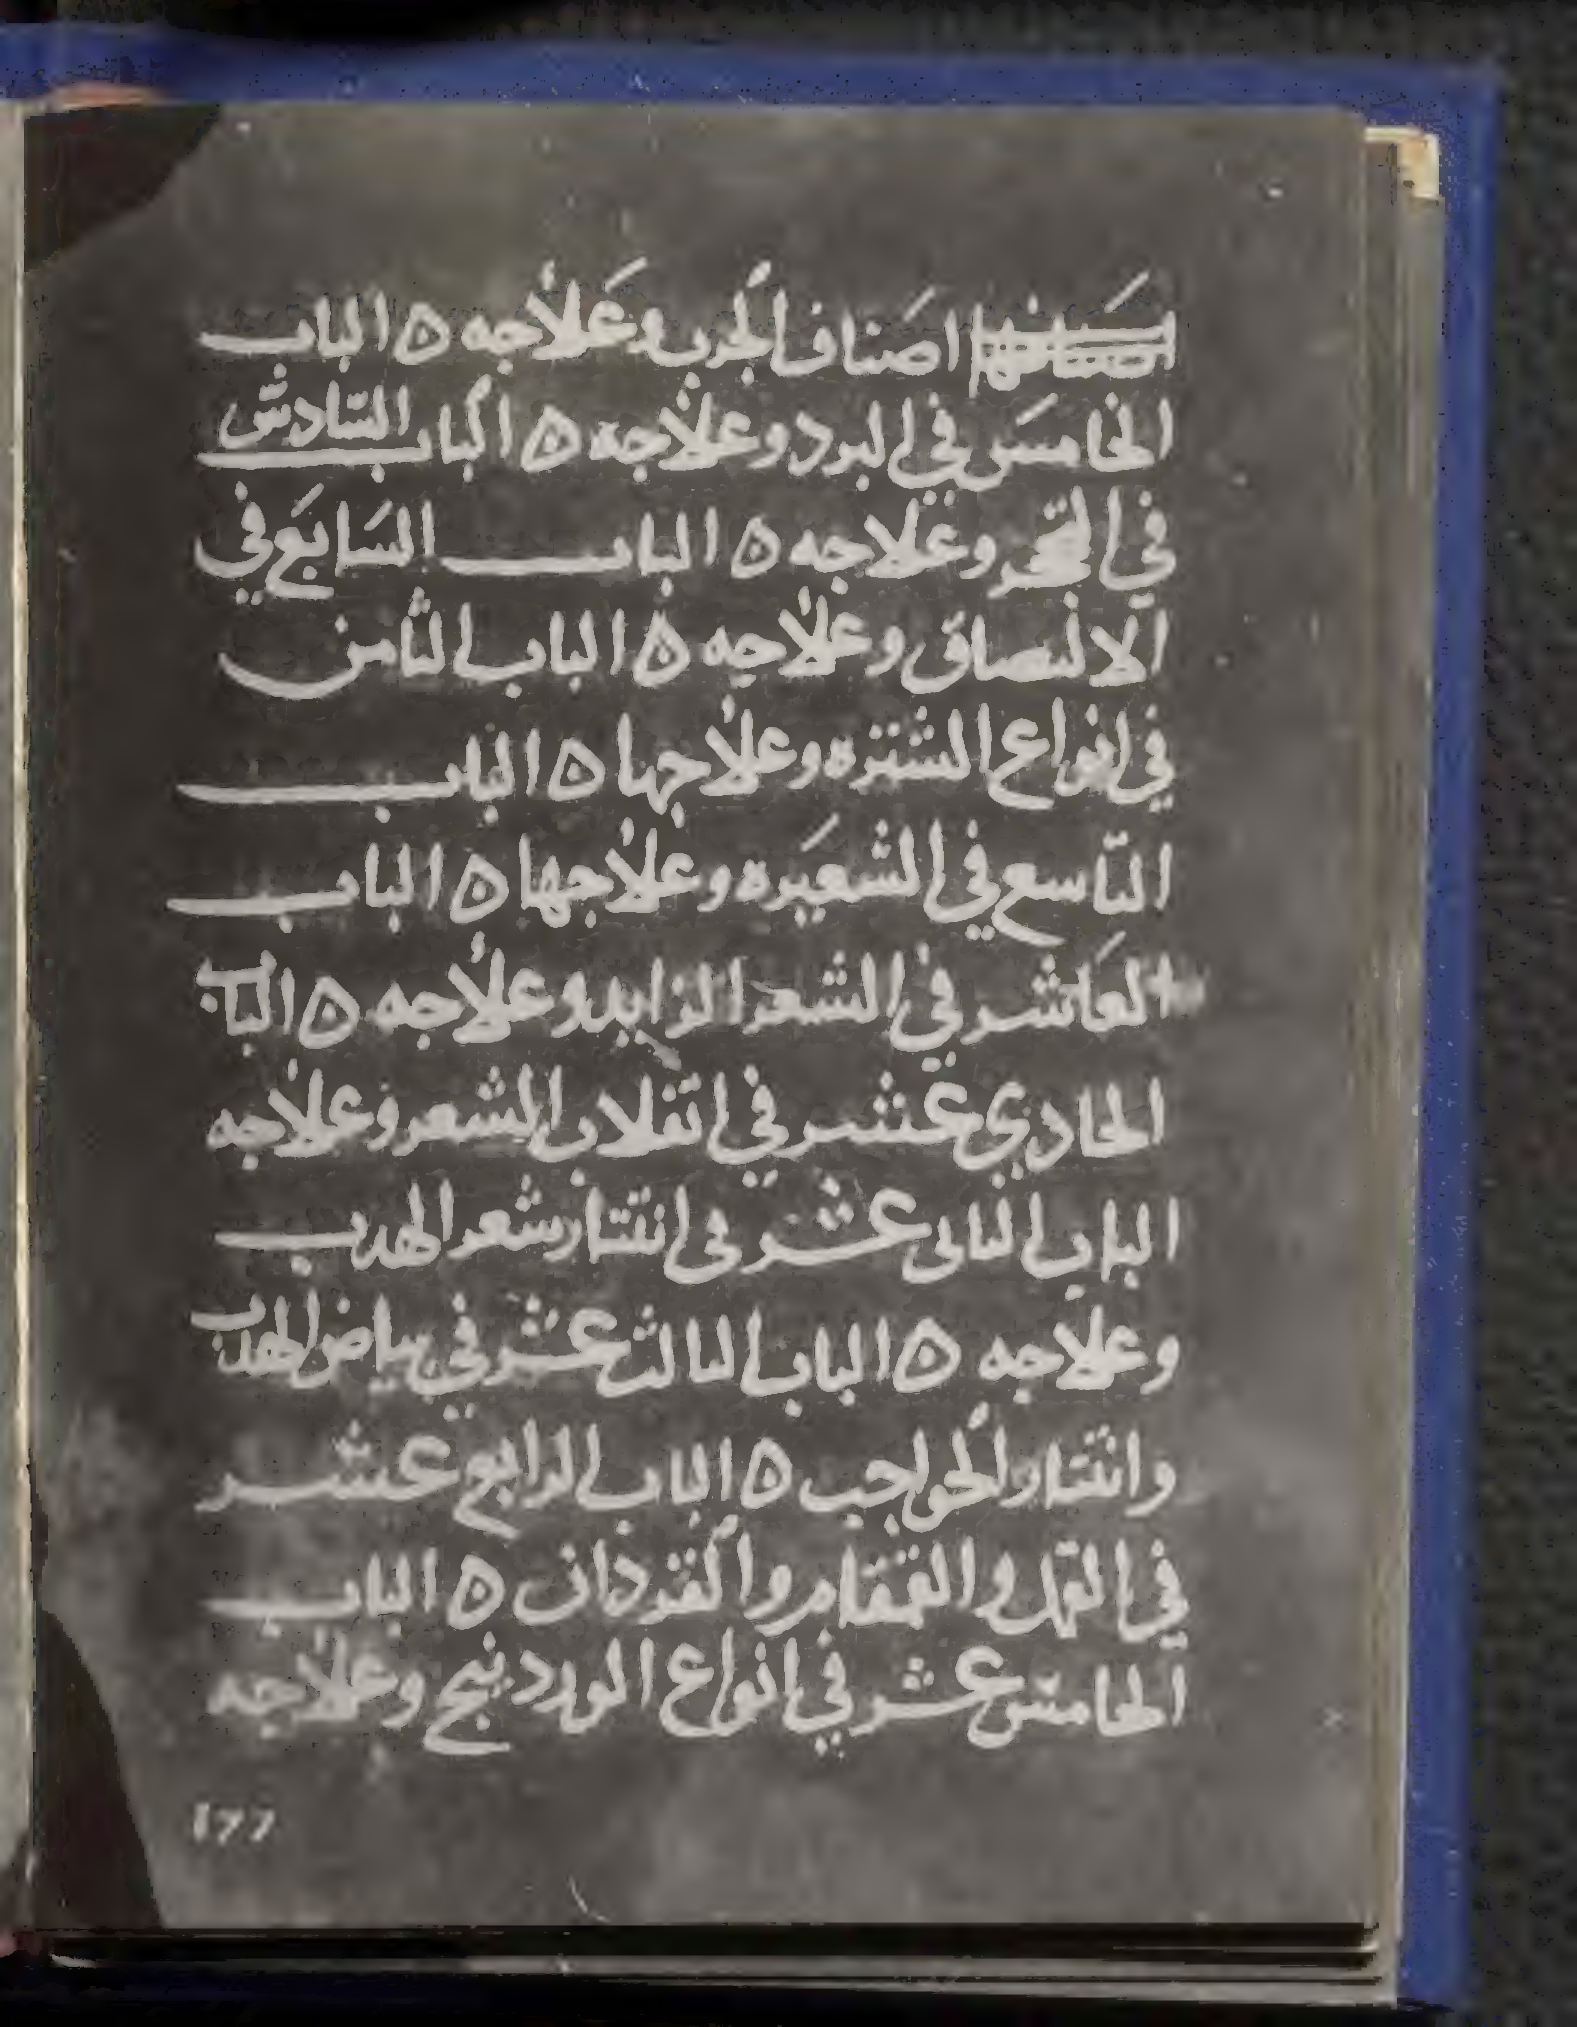 اصَناف الجرب وعَلاجه ه الباب
الخامسَ في البرد وعلاجه ه الباب السّادس
في التحجر وعلاجه ه الباب السَابَع في
الالتصاق وعلاجه ه الباب الثامن
في انواع الشتره وعلاجها ه الباب
التّاسع في الشعَيره وعلاجها ه الباب
العَاشر في الشعر الزايد وعلاجه ه الباب
الحادي عشر في انقلاب الشعر وعلاجه
الباب الثانى عشر فى انتثار شعر الهدب
وعلاجه ه الباب الثالث عشر في بياض الهدب
وانتثار الحواجب ه الباب الرابع عشر
في القمل والقمقام والقردان ه الباب
الخامس عشر في انواع الوردينج وعلاجه
١٧٧